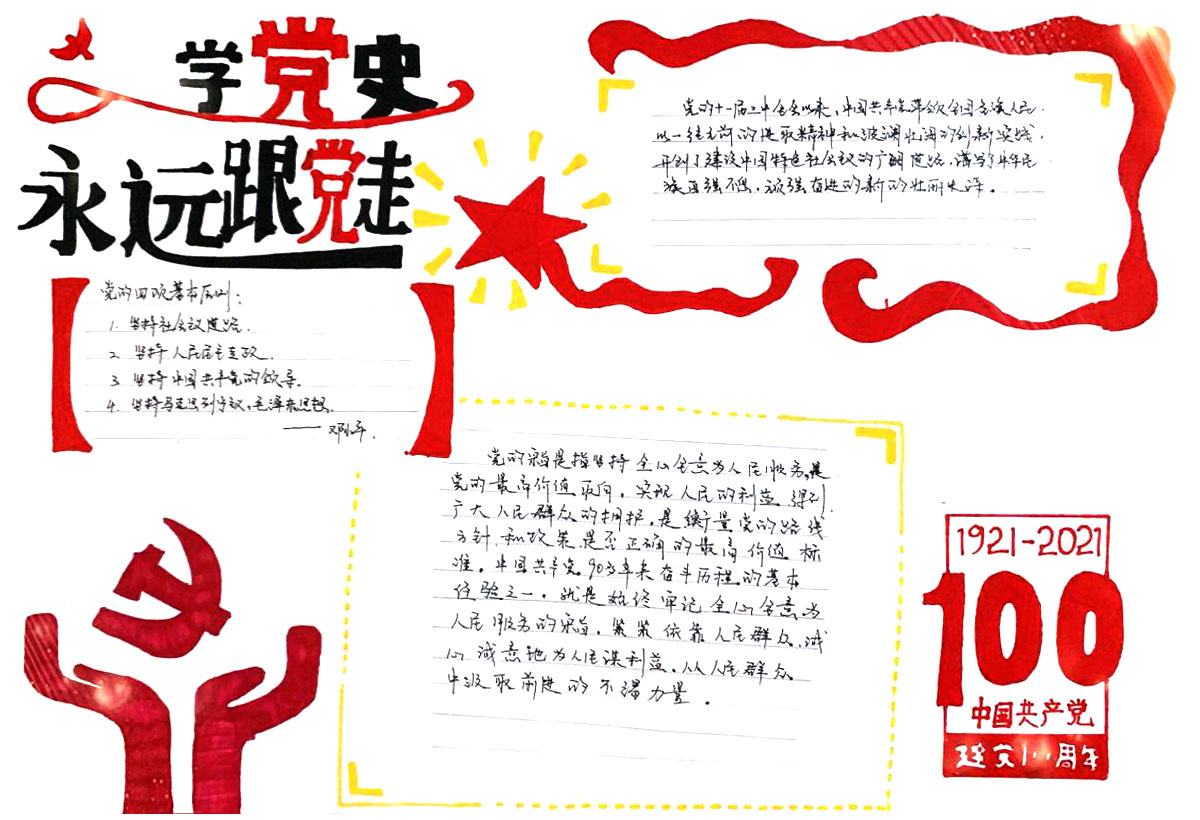 学党史
永远跟党走
党的十一届三中全会以来，中国共产党率领全国各族人民
以一往无前的进取精神和波澜壮阔的创新实践，
开创了建设中国特色社会议的广阔道路，谱写了中华民
族自强不息，顽强奋进的新的壮丽史诗。
党的四项基本原则：
1. 坚持社会议道路.
2. 坚持人民民主专政.
3. 坚持中国共产党的领导.
4. 坚持马克思列宁议，毛泽东思想.
——邓小平.
党的宗旨是指坚持全心全意为人民服务，是
党的最高价值取向。实现人民的利益 得到
广大人民群众的拥护，是衡量党的路线
方针和政策是否正确的最高价值标
准。中国共产党90多年来奋斗历程的基本
经验之一，就是始终牢记全心全意为
人民服务的宗旨，紧紧依靠人民群众，诚
心诚意地为人民谋利益，从人民群众
中汲取前进的不竭力量。
1921-2021
100
中国共产党
建党100周年